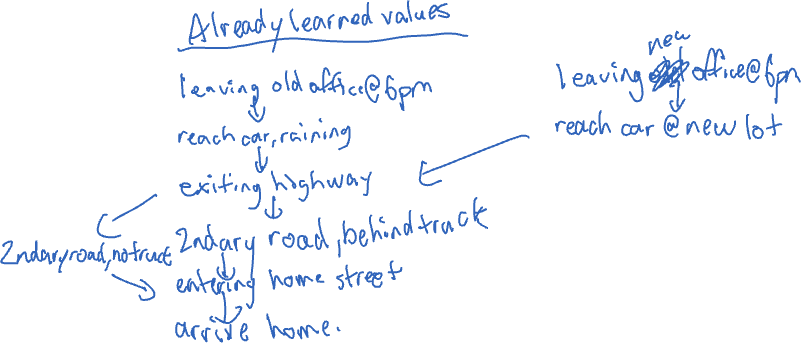 Already learned values
leaving old office@6pm
reach car, raining
exiting highway
2ndary road, behind truck
entering home street
arrive home.
2ndary road, no truck
new
leaving office@6pm
reach car @ new lot